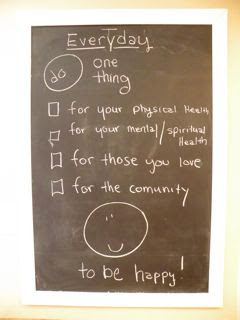 Everyday
do one
thing
for your physical Health
for your mental/spiritual
Health
for those you love
for the comunity
to be happy!